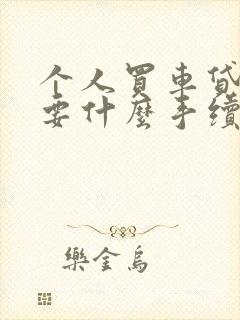 个人買車貸
要什麼手續
樂金烏